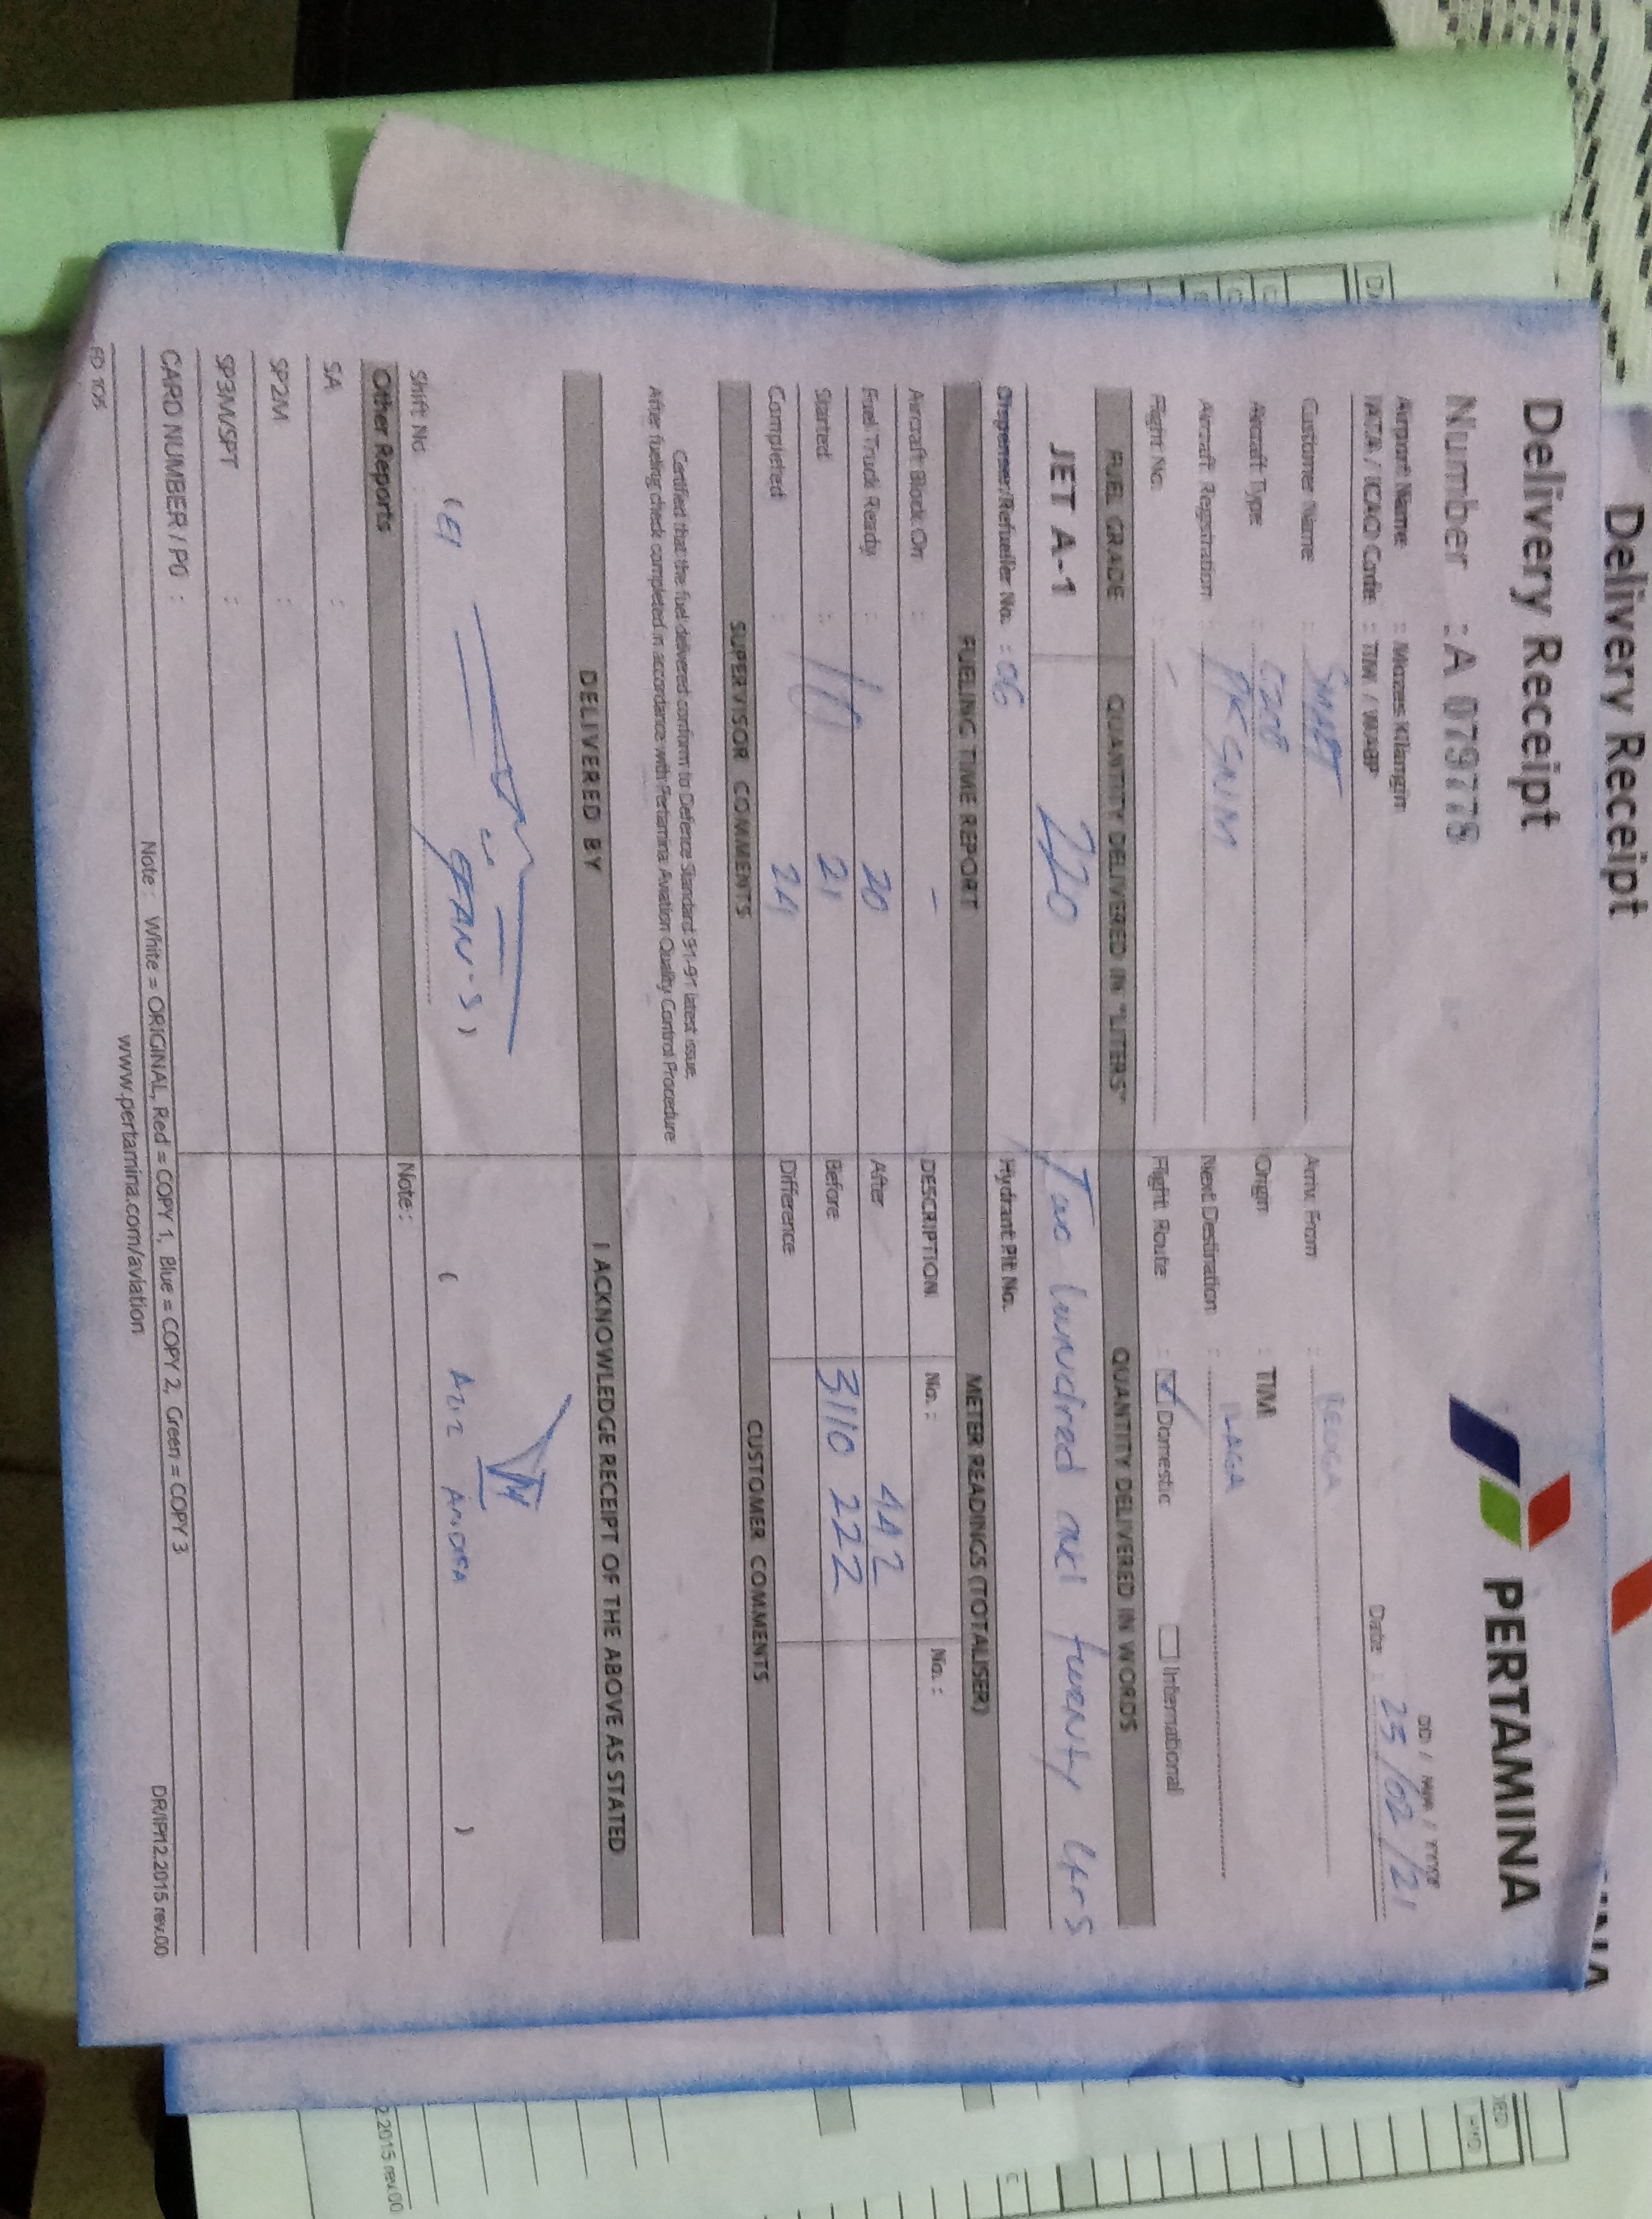 Delivery Receipt
Delivery Receipt
PERTAMINA
Number : A 079775
DD / MM / YYYY
Airport Name : Mozes Kilangin
Date : 23/02/21
IATA / ICAO Code : TIM / WABP
Customer Name : SMART
Arriv. From :
Aircraft Type : C208
Origin : TIM
Aircraft Registration : PK SNM
Next Destination : ILAGA
Flight No. : -
Flight Route : Domestic International
FUEL GRADE QUANTITY DELIVERED IN "LITERS" QUANTITY DELIVERED IN WORDS
JET A-1 220 Two hundred and twenty ltrs
Dispenser/Refueller No. : 06 Hydrant Pit No.
FUELING TIME REPORT METER READINGS (TOTALISER)
Aircraft Block On : - DESCRIPTION No. : No. :
Fuel Truck Ready : 20 After 442
Started : 21 Before 3110 222
Completed : 24 Difference
SUPERVISOR COMMENTS CUSTOMER COMMENTS
Certified that the fuel delivered conform to Defence Standard 91-91 latest issue.
After fueling check completed in accordance with Pertamina Aviation Quality Control Procedure
DELIVERED BY I ACKNOWLEDGE RECEIPT OF THE ABOVE AS STATED
Shift No
Other Reports Note :
SA :
SP2M :
SP3M/SPT :
CARD NUMBER / PO :
Note : White = ORIGINAL, Red = COPY 1, Blue = COPY 2, Green = COPY 3
www.pertamina.com/aviation
DR/IP/12.2015 rev.00
2.2015 rev.00